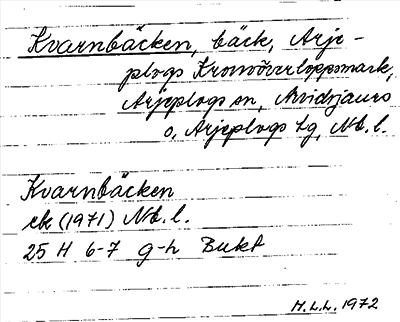 Kvarnbäcken, bäck, Arje-
plogs Kronoöverloppsmark,
Arjeplogs sn, Arvidsjaurs
o, Arjeplogs tg, Nb. l.
Kvarnbäcken
ek (1971) Nb. l.
25 H 6-7 g-h Bukt
H.L.L. 1972